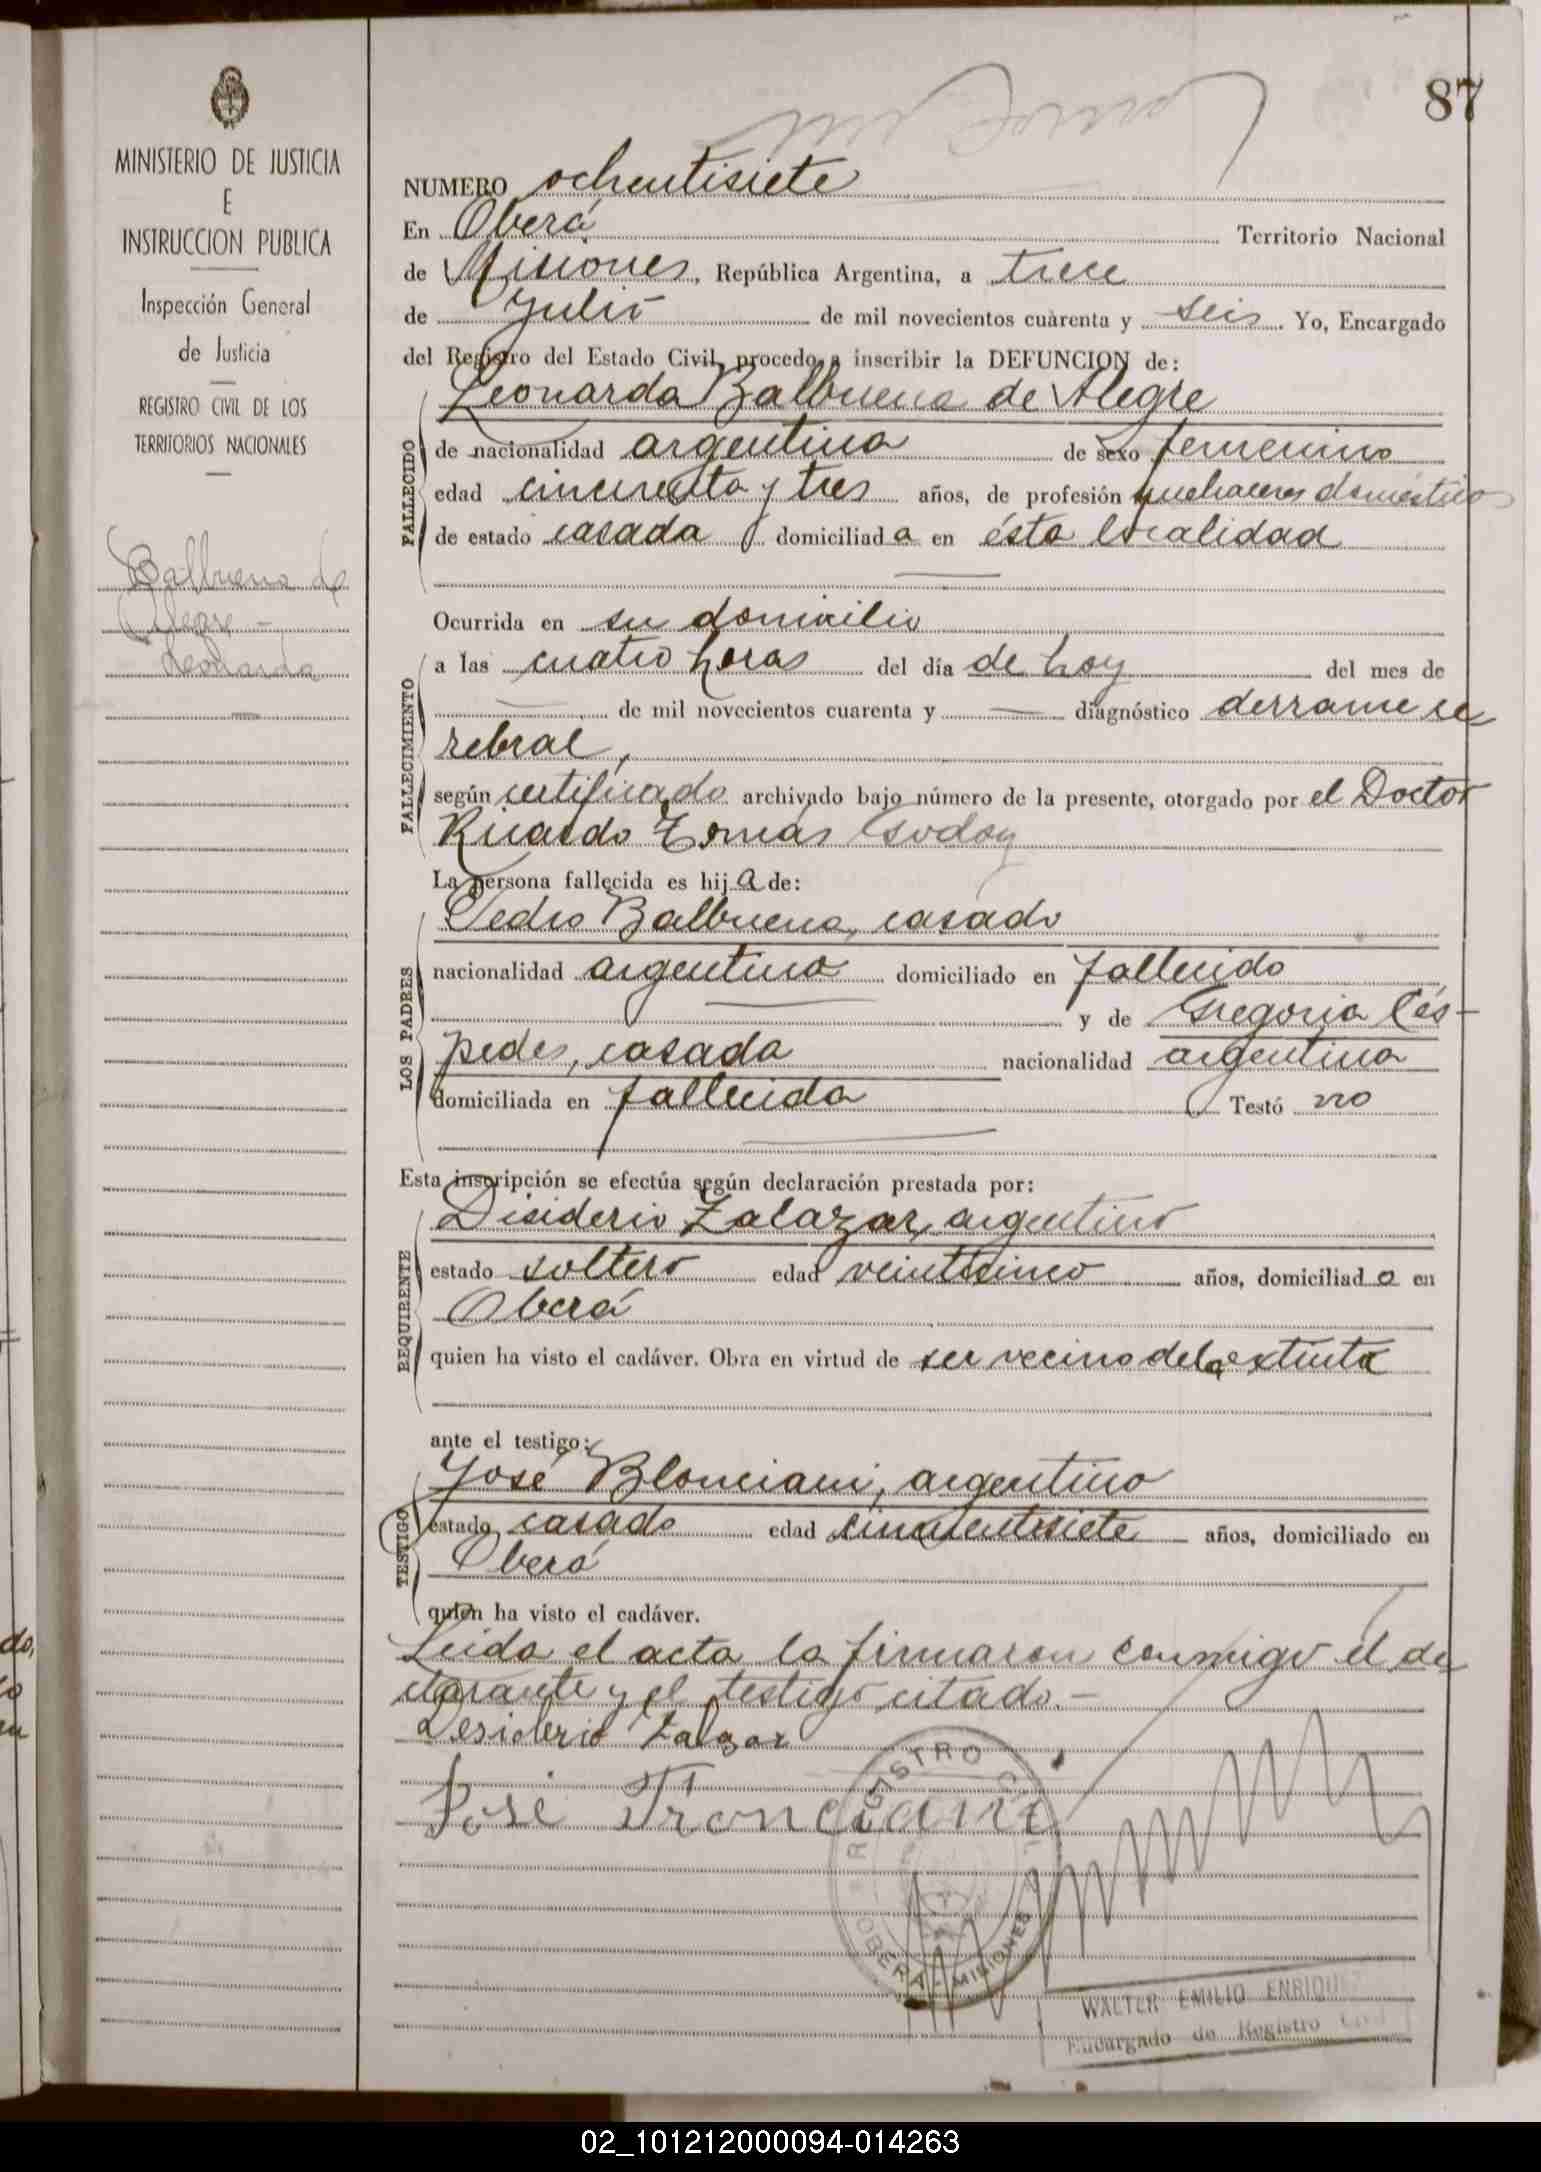 87
MINISTERIO DE JUSTICIA
E
INSTRUCCION PUBLICA
Inspección General
de Justicia
REGISTRO CIVIL DE LOS
TERRITORIOS NACIONALES
Balbuena de
Alegre -
Leonarda
NUMERO ochentisiete
En Oberá Territorio Nacional
de Misiones, República Argentina, a trece
de Julio de mil novecientos cuarenta y seis. Yo, Encargado
del Registro del Estado Civil, procedo a inscribir la DEFUNCION de:
Leonarda Balbuena de Alegre
FALLECIDO
de nacionalidad argentina de sexo femenino
edad cincuenta y tres años, de profesión quehaceres domésticos
de estado casada domiciliada en ésta localidad
Ocurrida en su domicilio
FALLECIMIENTO
a las cuatro horas del día de hoy del mes de
— de mil novecientos cuarenta y — diagnóstico derrame ce
rebral,
según certificado archivado bajo número de la presente, otorgado por el Doctor
Ricardo Tomás Godoy
La persona fallecida es hija de:
LOS PADRES
Pedro Balbuena, casado
nacionalidad argentino domiciliado en fallecido
y de Gregoria Cés-
pedes, casada nacionalidad argentina
domiciliada en fallecida Testó no
Esta inscripción se efectúa según declaración prestada por:
REQUIRENTE
Disiderio Zalazar, argentino
estado soltero edad veinticinco años, domiciliado en
Oberá
quien ha visto el cadáver. Obra en virtud de ser vecino de la extinta
ante el testigo:
TESTIGO
José Blonciani, argentino
estado casado edad cincuentisiete años, domiciliado en
Oberá
quien ha visto el cadáver.
Leida el acta la firmaron conmigo el de
clarante y el testigo citado.-
Desiderio Zalazar
José Fronciani
REGISTRO CIVIL
OBERA - MISIONES
WALTER EMILIO ENRIQUEZ
Encargado de Registro Civil
02_101212000094-014263